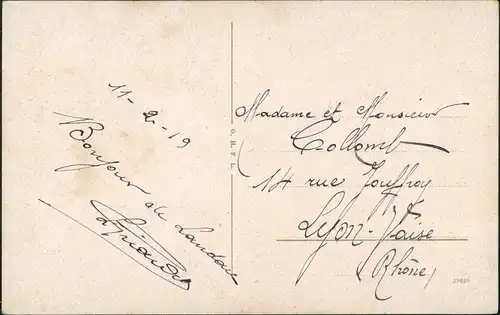 11-2-19
Bonjour de Landau
G. H. F. L.
Madame et Monsieur
Collomb
14 rue Jouffroy
Lyon-Vaise
Rhône